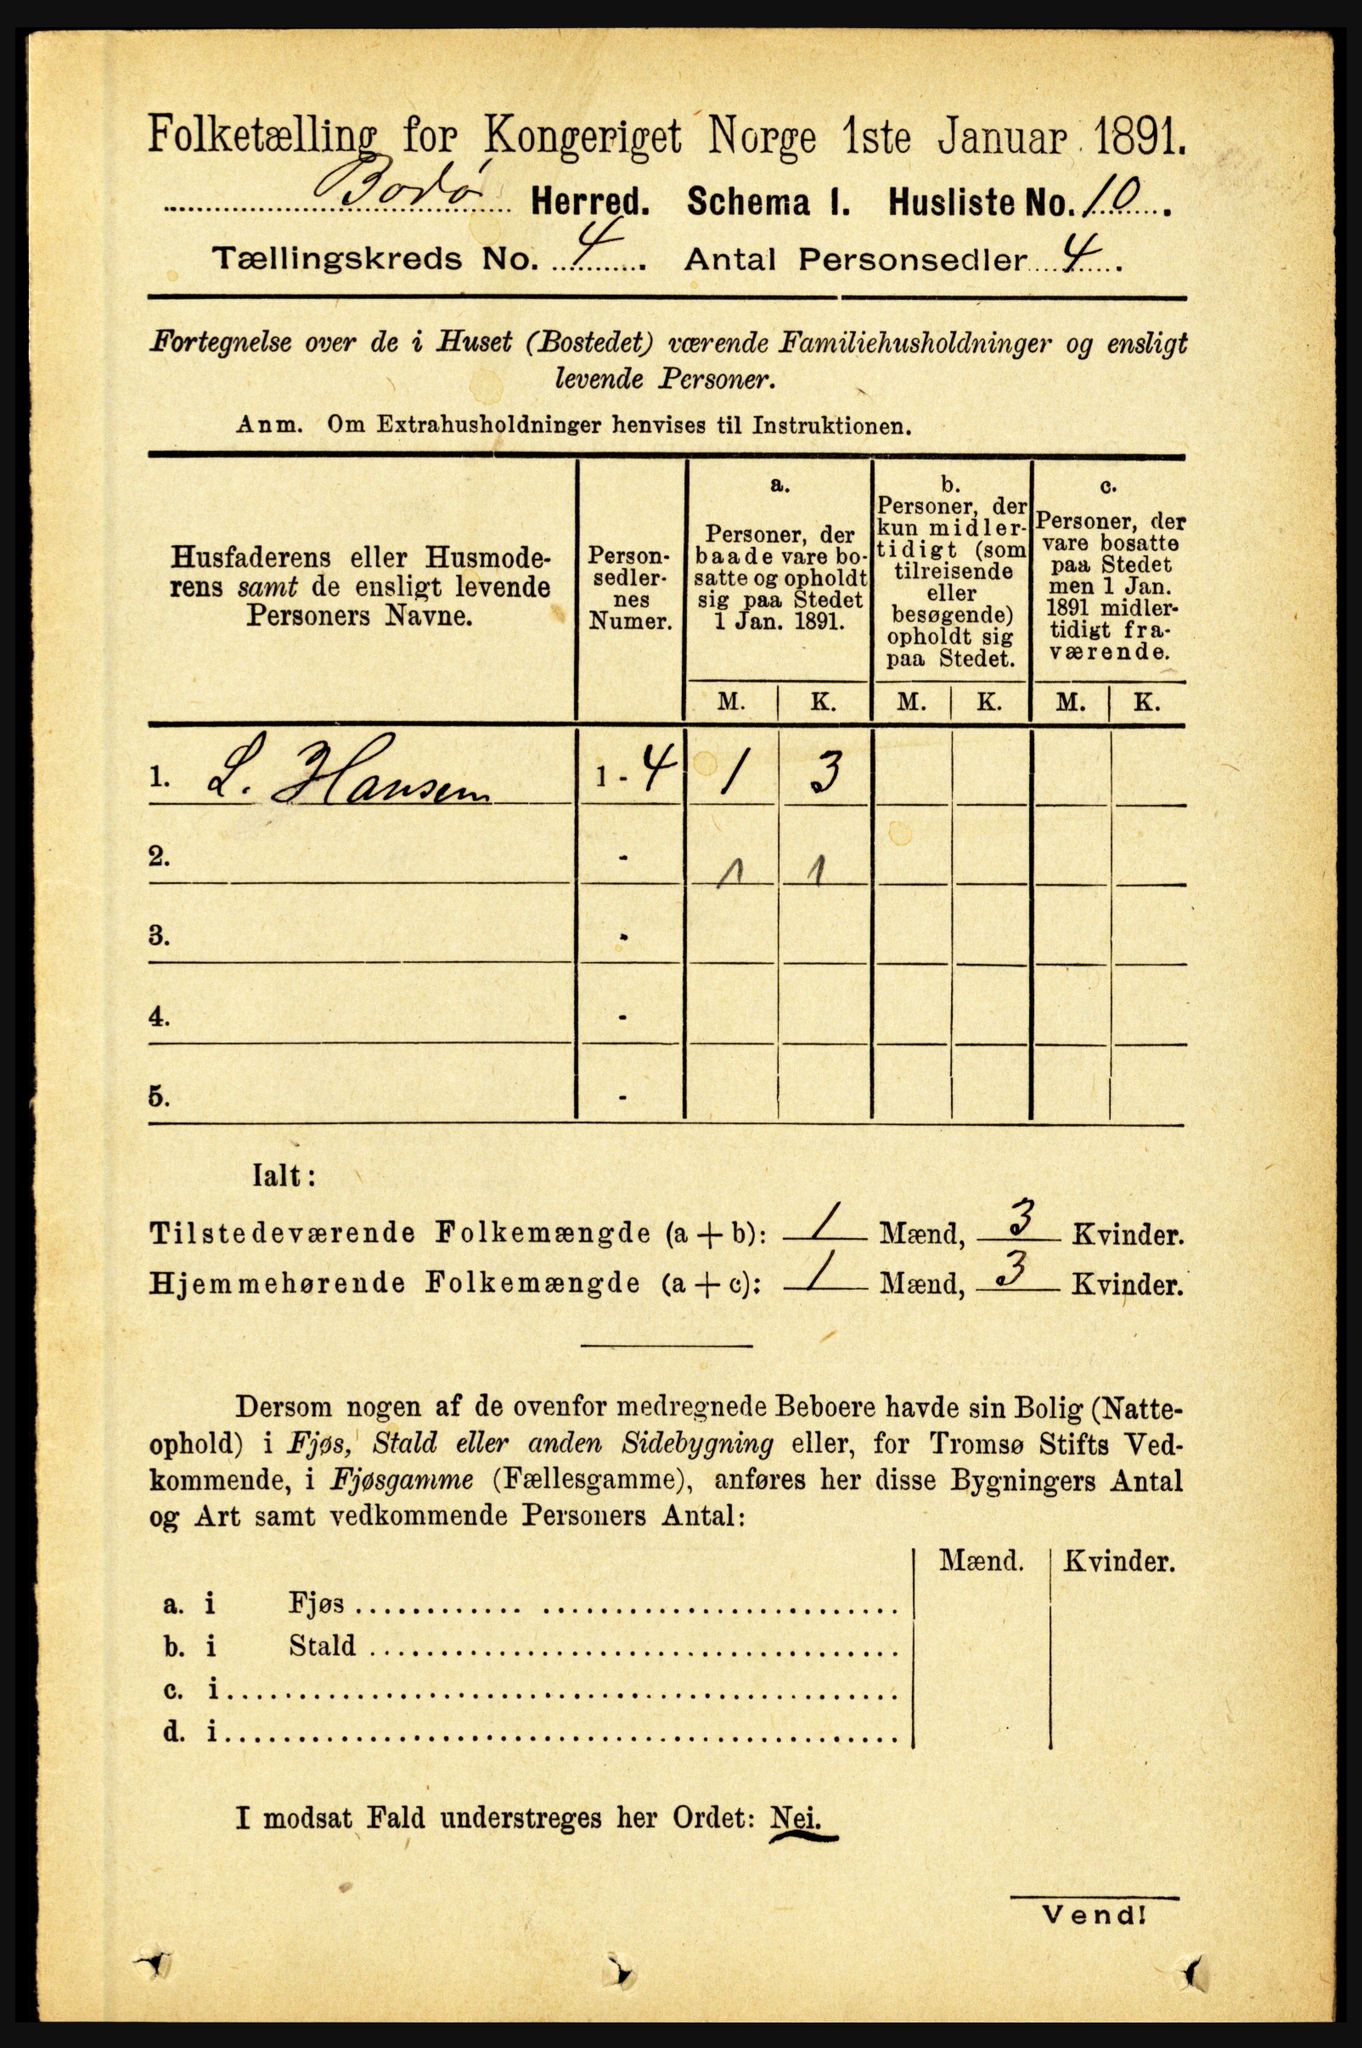 Folketælling for Kongeriget Norge 1ste Januar 1891.
Bodø Herred. Schema I. Husliste No. 10.
Tællingskreds No. 4. Antal Personsedler 4.
Fortegnelse over de i Huset (Bostedet) værende Familiehusholdninger og ensligt
levende Personer.
Anm. Om Extrahusholdninger henvises til Instruktionen.
Husfaderens eller Husmode-
rens samt de ensligt levende
Personers Navne.
Person-
sedler-
nes
Numer.
a.
Personer, der
baade vare bo-
satte og opholdt
sig paa Stedet
1 Jan. 1891.
b.
Personer, der
kun midler-
tidigt (som
tilreisende
eller
besøgende)
opholdt sig
paa Stedet.
c.
Personer, der
vare bosatte
paa Stedet
men 1 Jan.
1891 midler-
tidigt fra-
værende.
M. K. M. K. M. K.
1. L. Hansen 1 - 4 1 3
2. - 1 1
3. -
4. -
5. -
Ialt:
Tilstedeværende Folkemængde (a + b): 1 Mænd, 3 Kvinder.
Hjemmehørende Folkemængde (a + c): 1 Mænd, 3 Kvinder.
Dersom nogen af de ovenfor medregnede Beboere havde sin Bolig (Natte-
ophold) i Fjøs, Stald eller anden Sidebygning eller, for Tromsø Stifts Ved-
kommende, i Fjøsgamme (Fællesgamme), anføres her disse Bygningers Antal
og Art samt vedkommende Personers Antal:
Mænd. Kvinder.
a. i Fjøs
b. i Stald
c. i
d. i
I modsat Fald understreges her Ordet: Nei.
Vend!